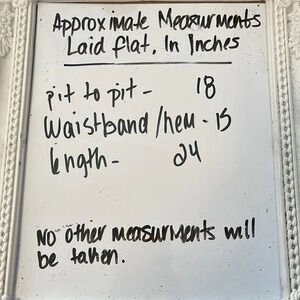 Approximate Measurments
Laid flat, In Inches
pit to pit - 18
Waistband/hem - 15
length - 24
No other measurments will
be taken.